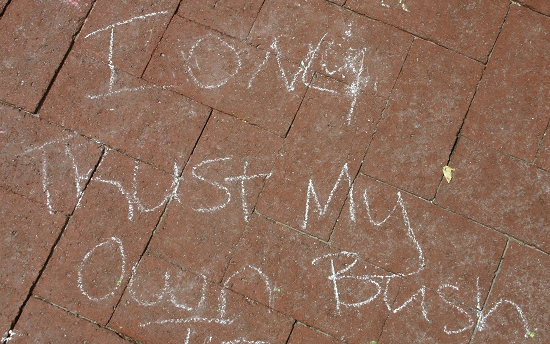 I only
Trust My
Own Bush